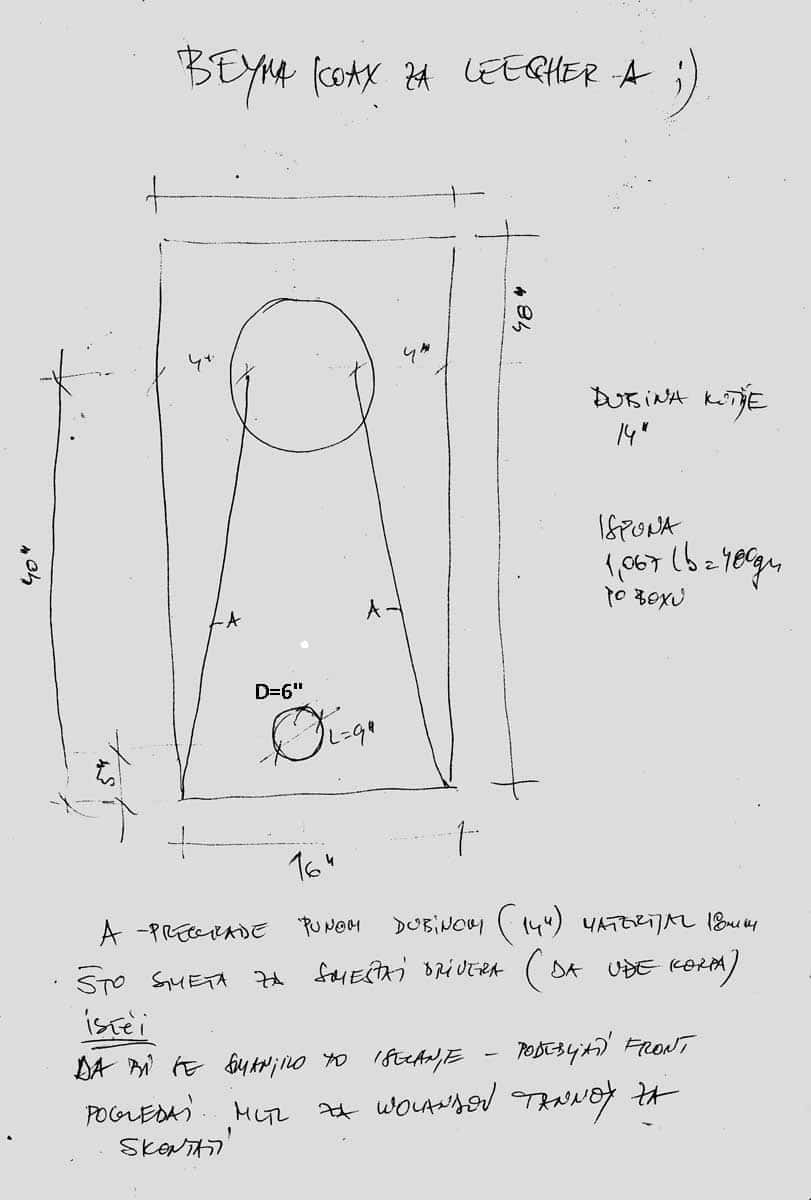 BEYMA KOAX ZA LEECHER-A ;)
48"
4"
4"
DUBINA KUTIJE
14"
40"
ISPUNA
1,067 lb = 480gm
PO BOXU
A
A
D=6"
L=9"
5"
16"
A - PREGRADE PUNOM DUBINOM (14") MATERIJAL 18mm
ŠTO SMETA ZA SMEŠTAJ DRIVERA (DA UĐE KORPA)
ISEĆI
DA BI SE SMANJILO TO ISECANJE - PODEBLJATI FRONT
POGLEDAJ MLTL ZA WOLANDOV TANNOY ZA
SKONTATI